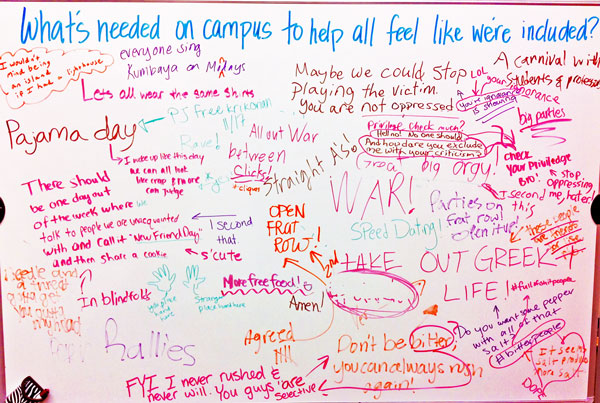 What's needed on campus to help all feel like we're included?
I wouldn't
mind being
on island
if I had a lighthouse
everyone sing
Kumbaya on Mondays
Lets all wear the same shirts
PJ Free Krikorian
11/17
Pajama day
I woke up like this day
we can all look
like crap & no one
can judge
Rave!
All out War
between
Clicks!
*cliques
Straight A's!
Maybe we could stop
playing the victim.
You are not oppressed
LOL
your ignorance
is showing
A carnival with
students & professors
big parties
Privilege check much?
Hell no! No one should
And how dare you exclude
me with your criticism?
big orgy!
check
your priviledge
bro!
stop
oppressing
me, hater
I second
this
WAR!
Parties on
frat row!
open it up!
Speed Dating!
There should
be one day out
of the week where we
talk to people we are unacquainted
with and call it "New Friend Day"
and then share a cookie
I second
that
s'cute
In blindfolds
you place
hand here
Stranger
place hand here
More free food!
OPEN
FRAT
ROW!
2nd
Amen!
TAKE OUT GREEK
LIFE!
these people
#fullofshitpeople
Do you want some pepper
with all of that
salt
#bitterpeople
It seems
more salt
Dope
rallies
Agreed
Don't be bitter,
you can always rush
again!
FYI I never rushed &
never will. You guys are
selective